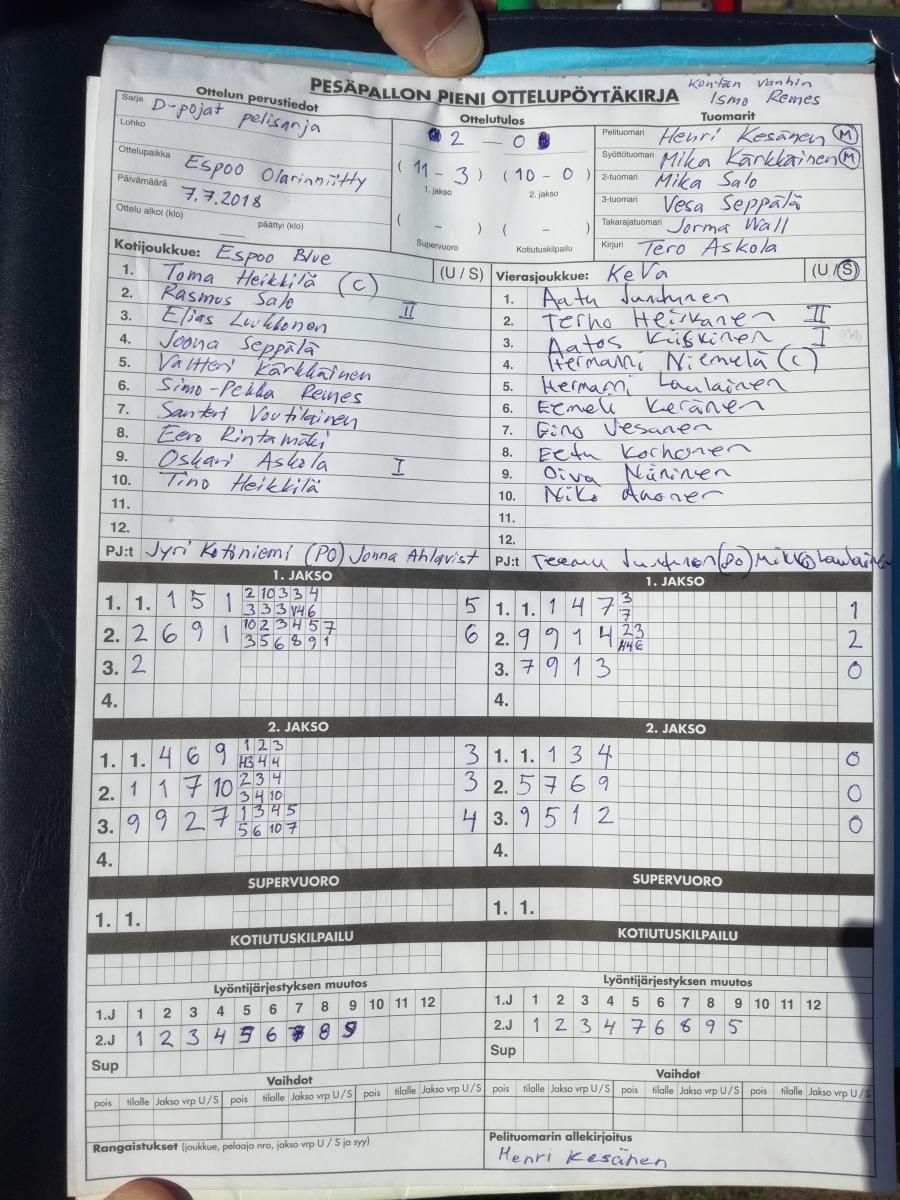 PESÄPALLON PIENI OTTELUPÖYTÄKIRJA
Kentän vanhin
Ismo Remes
Ottelun perustiedot
Sarja D-pojat pelisarja
Lohko
Ottelupaikka Espoo Olarinniitty
Päivämäärä 7.7.2018
Ottelu alkoi (klo) päättyi (klo)
Ottelutulos
2 - 0
( 11 - 3 ) ( 10 - 0 )
1. jakso 2. jakso
( - ) ( - )
Supervuoro Kotiutuskilpailu
Tuomarit
Pelituomari Henri Kesänen M
Syöttötuomari Mika Kärkkäinen M
2-tuomari Mika Salo
3-tuomari Vesa Seppälä
Takarajatuomari Jorma Wall
Kirjuri Tero Askola
Kotijoukkue: Espoo Blue (U / S)
1. Toma Heikkilä (C)
2. Rasmus Salo
3. Elias Luukkonen II
4. Joona Seppälä
5. Valtteri Kärkkäinen
6. Simo-Pekka Remes
7. Santeri Voutilainen
8. Eero Rintamäki
9. Oskari Askola I
10. Tino Heikkilä
11.
12.
PJ:t Jyri Kotiniemi (PO) Jonna Ahlqvist
Vierasjoukkue: KeVa (U / S)
1. Aatu Juntunen
2. Terho Heiskanen II
3. Aatos Kiiskinen I
4. Hermanni Niemelä (C)
5. Hermanni Laulainen
6. Eemeli Keränen
7. Eino Vesanen
8. Eetu Korhonen
9. Oiva Niininen
10. Niko
11.
12.
PJ:t Teemu Juntunen (PO) Mikko Laulainen
1. JAKSO
1. 1. 1 5 1 2 10 3 3 4 5
3 3 3 V4 6
2. 2 6 9 1 10 2 3 4 5 7 6
3 5 6 8 9 1
3. 2
4.
1. JAKSO
1. 1. 1 4 7 3 1
7
2. 9 9 1 4 2 3 2
H4 6
3. 7 9 1 3 0
4.
2. JAKSO
1. 1. 4 6 9 1 2 3 3
H3 4 4
2. 1 1 7 10 2 3 4 3
3 4 10
3. 9 9 2 7 1 3 4 5 4
5 6 10 7
4.
2. JAKSO
1. 1. 1 3 4 0
2. 5 7 6 9 0
3. 9 5 1 2 0
4.
SUPERVUORO
1. 1.
SUPERVUORO
1. 1.
KOTIUTUSKILPAILU
KOTIUTUSKILPAILU
Lyöntijärjestyksen muutos
1.J 1 2 3 4 5 6 7 8 9 10 11 12
2.J 1 2 3 4 5 6 8 9
Sup
Lyöntijärjestyksen muutos
1.J 1 2 3 4 5 6 7 8 9 10 11 12
2.J 1 2 3 4 7 6 8 9 5
Sup
Vaihdot
pois tilalle Jakso vrp U / S pois tilalle Jakso vrp U / S pois tilalle Jakso vrp U / S
Vaihdot
pois tilalle Jakso vrp U / S pois tilalle Jakso vrp U / S pois tilalle Jakso vrp U / S
Rangaistukset (joukkue, pelaaja nro, jakso vrp U / S ja syy)
Pelituomarin allekirjoitus
Henri Kesänen